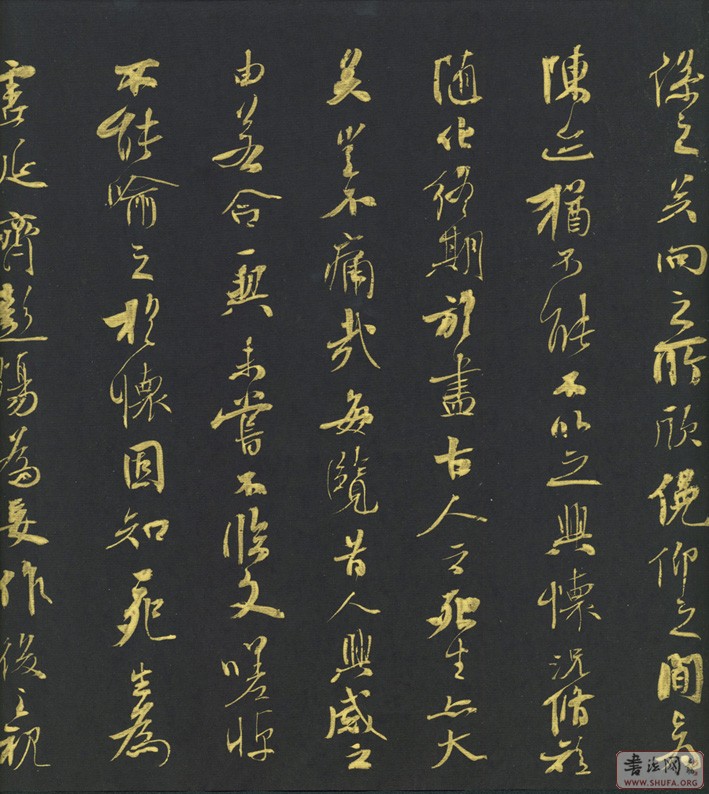 係之矣向之所欣俛仰之間以
陳迹猶不能不以之興懷況脩短
隨化終期於盡古人云死生亦大
矣豈不痛哉每覽昔人興感之
由若合一契未嘗不臨文嗟悼
不能喻之於懷固知一死生為
虛誕齊彭殤為妄作後之視
書法网
WWW.SHUFA.ORG